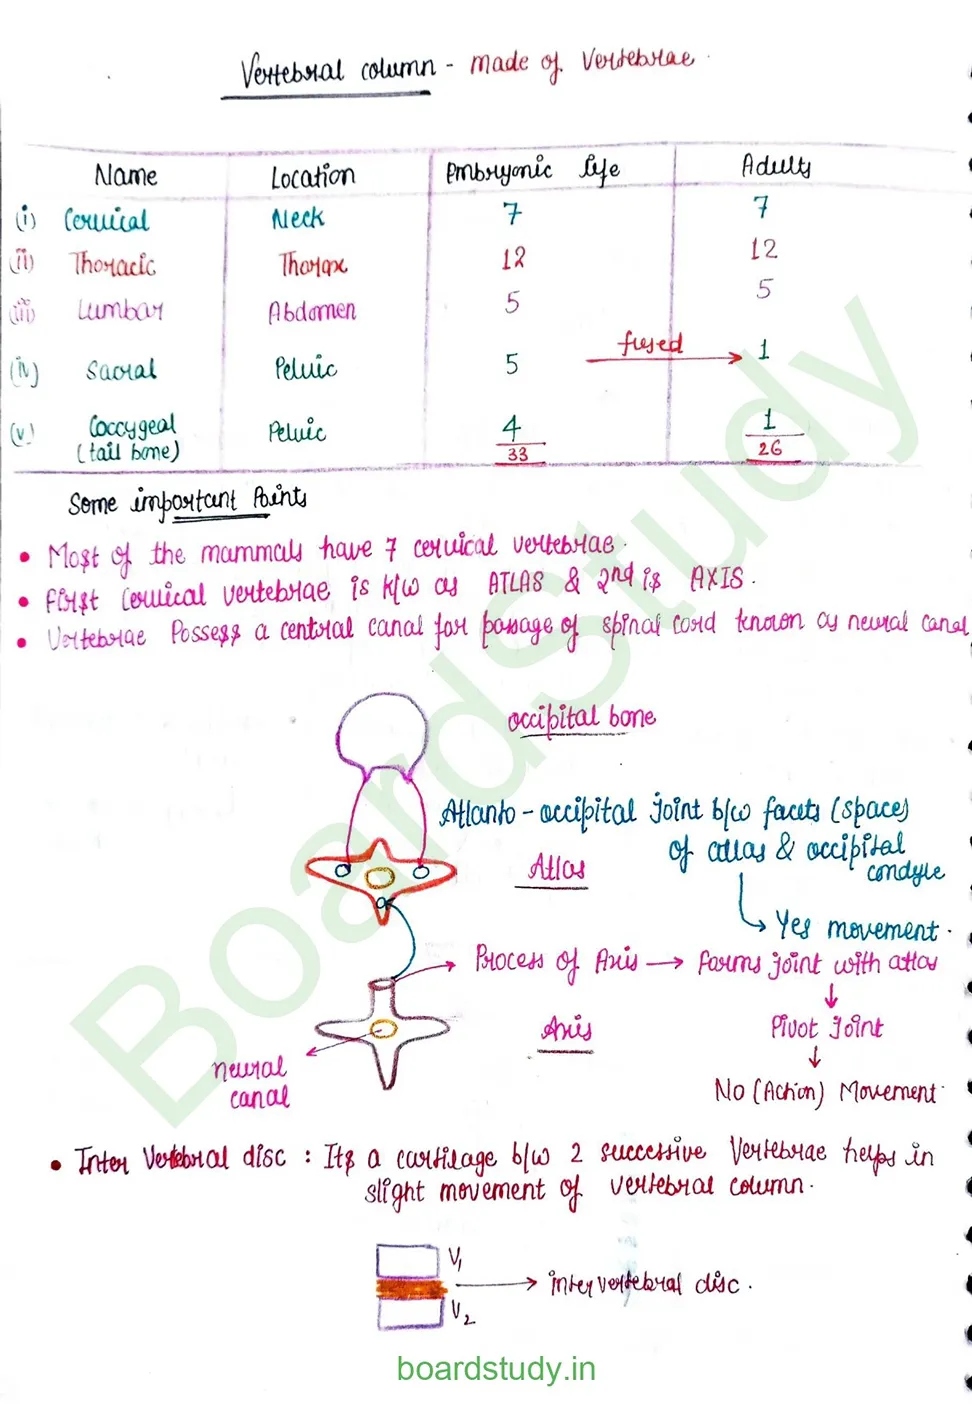 Vertebral column - made of Vertebrae.
Name Location Embryonic life Adults
(i) Cervical Neck 7 7
(ii) Thoracic Thorax 12 12
(iii) Lumbar Abdomen 5 5
(iv) Sacral Pelvic 5 fused 1
(v) Coccygeal Pelvic 4 1
(tail bone) 33 26
Some important Points
• Most of the mammals have 7 cervical vertebrae.
• First Cervical vertebrae is k/w as ATLAS & 2nd is AXIS.
• Vertebrae Possess a central canal for passage of spinal cord known as neural canal
occipital bone
Atlanto - occipital joint b/w facets (space)
of atlas & occipital
condyle
Atlas
Yes movement.
Process of Axis → forms joint with atlas
Axis
Pivot Joint
neural
canal
No (Action) Movement.
• Inter Vertebral disc : Its a cartilage b/w 2 successive Vertebrae helps in
slight movement of vertebral column.
V1
intervertebral disc.
V2
BoardStudy
boardstudy.in